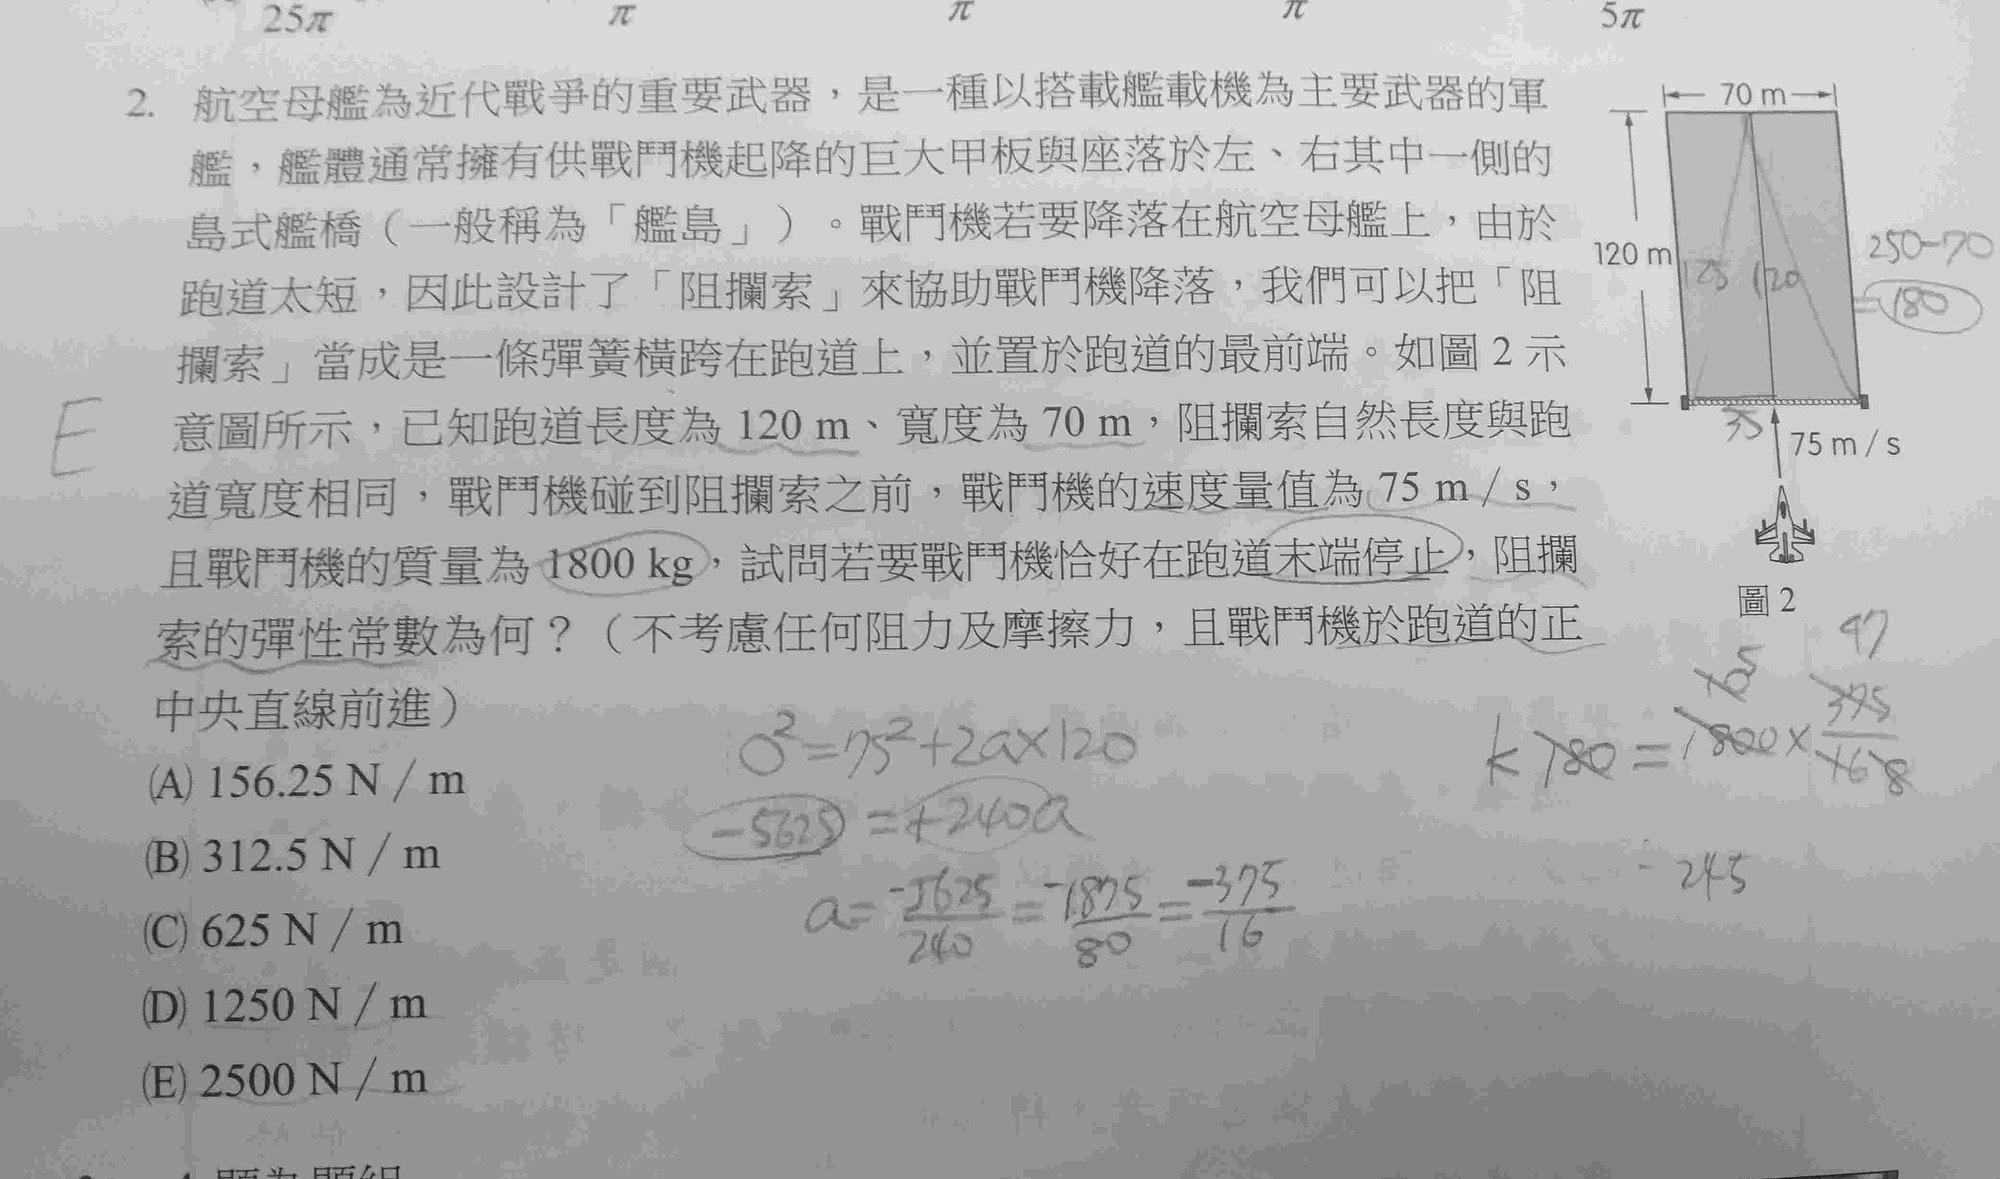 25π
π
π
π
5π
2. 航空母艦為近代戰爭的重要武器，是一種以搭載艦載機為主要武器的軍
艦，艦體通常擁有供戰鬥機起降的巨大甲板與座落於左、右其中一側的
島式艦橋（一般稱為「艦島」）。戰鬥機若要降落在航空母艦上，由於
跑道太短，因此設計了「阻攔索」來協助戰鬥機降落，我們可以把「阻
攔索」當成是一條彈簧橫跨在跑道上，並置於跑道的最前端。如圖 2 示
意圖所示，已知跑道長度為 120 m、寬度為 70 m，阻攔索自然長度與跑
道寬度相同，戰鬥機碰到阻攔索之前，戰鬥機的速度量值為 75 m / s，
且戰鬥機的質量為 1800 kg，試問若要戰鬥機恰好在跑道末端停止，阻攔
索的彈性常數為何？（不考慮任何阻力及摩擦力，且戰鬥機於跑道的正
中央直線前進）
(A) 156.25 N / m
(B) 312.5 N / m
(C) 625 N / m
(D) 1250 N / m
(E) 2500 N / m
E
70 m
120 m
125 120
250-70
=180
35
75 m / s
圖 2
0²=75²+2a×120
-5625=+240a
a=-5625/240=-1875/80=-375/16
47
k 180=1800×375/168
245